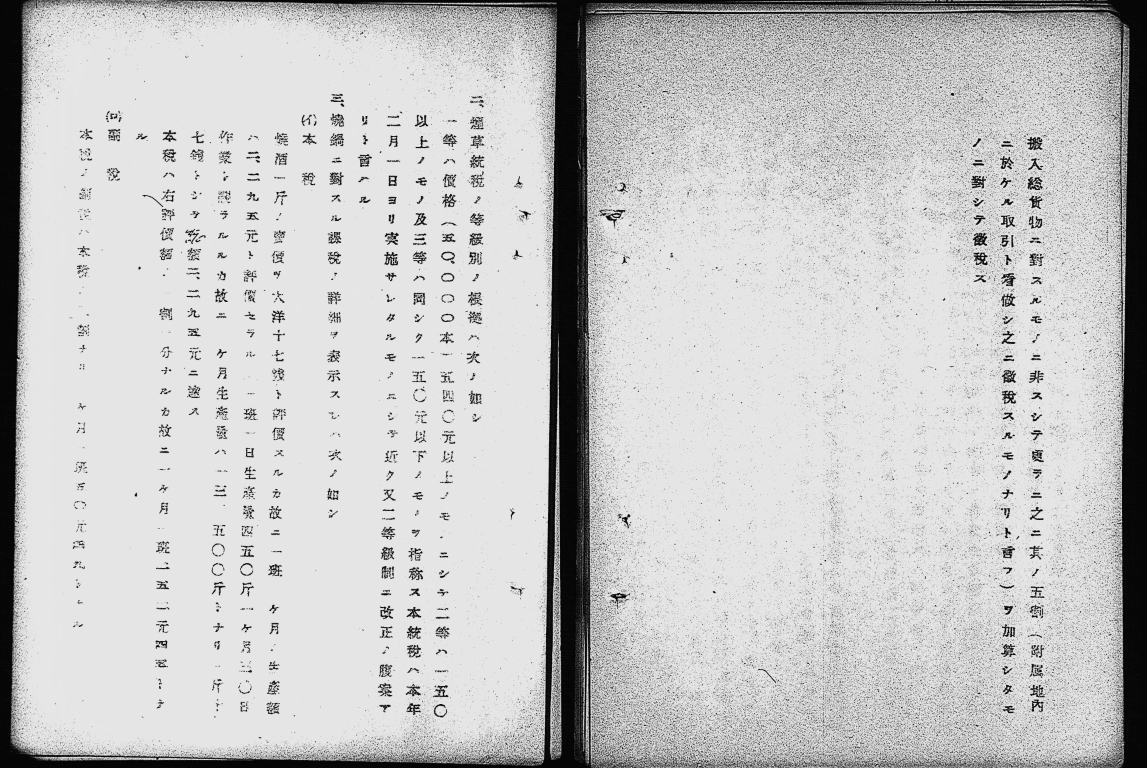 搬入総貨物ニ對スルモノニ非スシテ更ラニ之ニ其ノ五割（附属地内
ニ於ケル取引ト看做シ之ニ徴税スルモノナリト言フ）ヲ加算シタモ
ノニ對シテ徴税ス
二、煙草統税ノ等級別ノ根拠ハ次ノ如シ
一等ハ價格（五〇、〇〇〇本）五四〇元以上ノモノニシテ二等ハ一五〇
以上ノモノ及三等ハ同シク一五〇元以下ノモノヲ指称ス本統税ハ本年
二月一日ヨリ実施サレタルモノニシテ近ク又二等級制ニ改正ノ腹案ア
リト言ハル
三、燒鍋ニ對スル課税ノ詳細ヲ表示スレハ次ノ如シ
(イ)本　税
燒酒一斤ノ賣價ヲ大洋十七錢ト評價スルカ故ニ一班一ケ月ノ生産額
ハ二、二九五元ト評價セラル　一班一日生産量四五〇斤一ケ月三〇日
作業ト見ラルルカ故ニ一ケ月生産量ハ一三、五〇〇斤トナリ一斤十
七錢トシテ総額二、二九五元ニ達ス
本税ハ右評價額ノ一割一分ナルカ故ニ一ケ月一班二五二元四五トナ
ル
(ロ)副　税
本税ノ副税ハ本税ノ二割ナリ　ケ月一班五〇元四九トナル